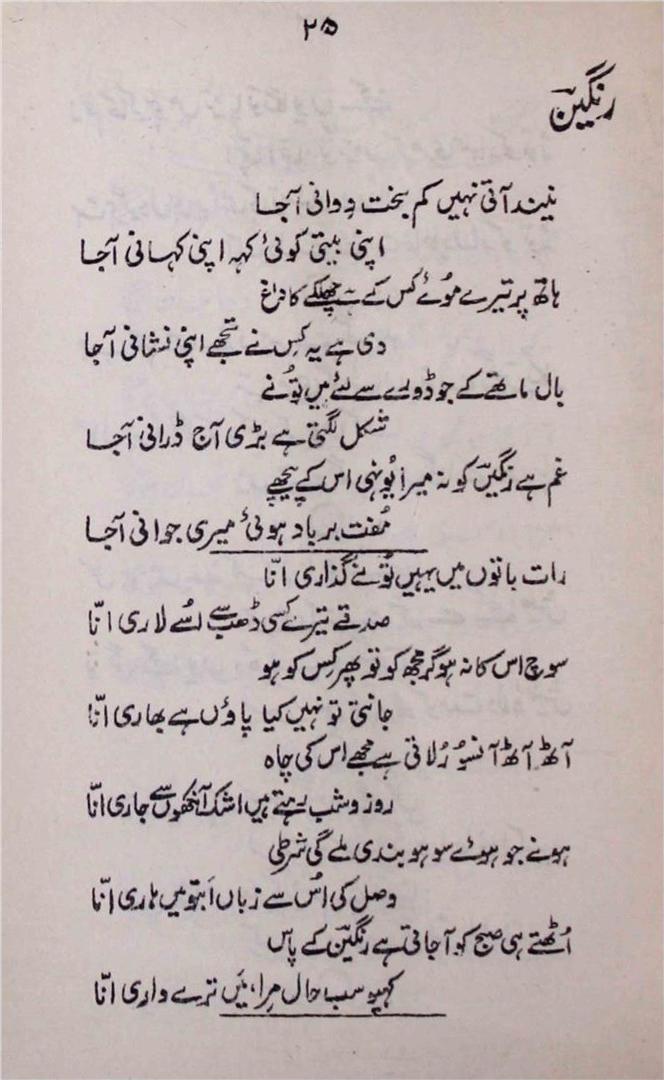 ۲۵
رنگینؔ
نیند آتی نہیں کم بخت دِوانی آجا
اپنی بیتی کوئی کہہ اپنی کہانی آجا
ہاتھ پر تیرے موئے کس کے ہے چھلکے کا داغ
دی ہے یہ کس نے تجھے اپنی نشانی آجا
بال ماتھے کے جو ڈورے سے لئے ہیں تُونے
شکل لگتی ہے بڑی آج ڈرانی آجا
غم ہے رنگیںؔ کو نہ میرا یُونہی اس کے پیچھے
مُفت برباد ہوئی میری جوانی آجا
رات باتوں میں یہیں تُونے گذاری انّا
صدقے تیرے کسی ڈھب سے اُسے لا ری انّا
سوچ اس کا نہ ہو گر مجھ کو تو پھر کس کو ہو
جانتی تو نہیں کیا پاؤں ہے بھاری انّا
آٹھ آٹھ آنسو رُلاتی ہے مجھے اس کی چاہ
روز و شب بہتے ہیں اشک آنکھوں سے جاری انّا
ہونے جو ہوئے سو ہو بندی ملے گی شرطی
وصل کی اُس سے زباں اَبتو میں ہاری انّا
اُٹھتے ہی صبح کو آجاتی ہے رنگینؔ کے پاس
کہیو سب حال مِرا، مَیں ترے واری انّا